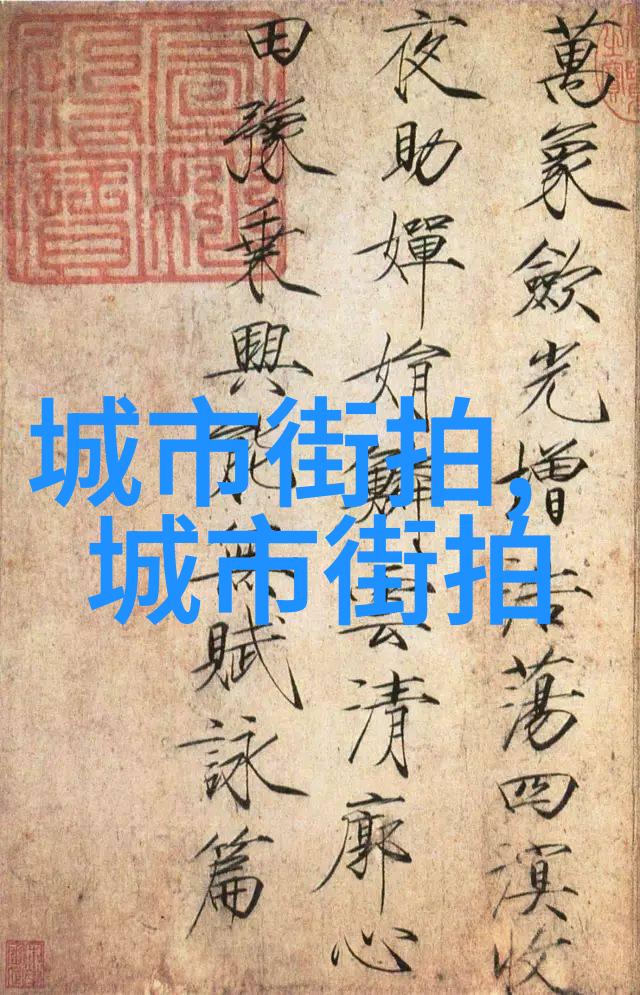 萬象歛光增浩蕩四溟收
夜助嬋娟鱗雲清廓心
田豫乗興能無賦詠篇
城市街拍,
城市街拍